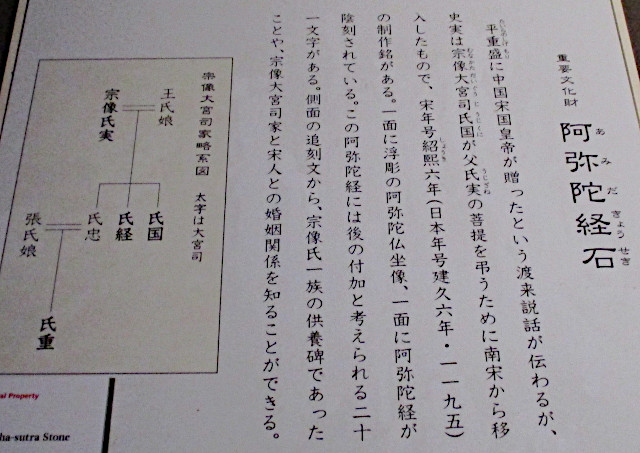 重要文化財
阿弥陀経石
あみだきょうせき
平重盛に中国宋国皇帝が贈ったという渡来説話が伝わるが、
史実は宗像大宮司氏国が父氏実の菩提を弔うために南宋から移
入したもので、宋年号紹熙六年(日本年号建久六年・一一九五)
の制作銘がある。一面に浮彫の阿弥陀仏坐像、一面に阿弥陀経が
陰刻されている。この阿弥陀経には後の付加と考えられる二十
一文字がある。側面の追刻文から、宗像氏一族の供養碑であった
ことや、宗像大宮司家と宋人との婚姻関係を知ることができる。
宗像大宮司家略系図 太字は大宮司
王氏娘
宗像氏実
氏国
氏経
氏忠
張氏娘
氏重
al Property
ha-sutra Stone